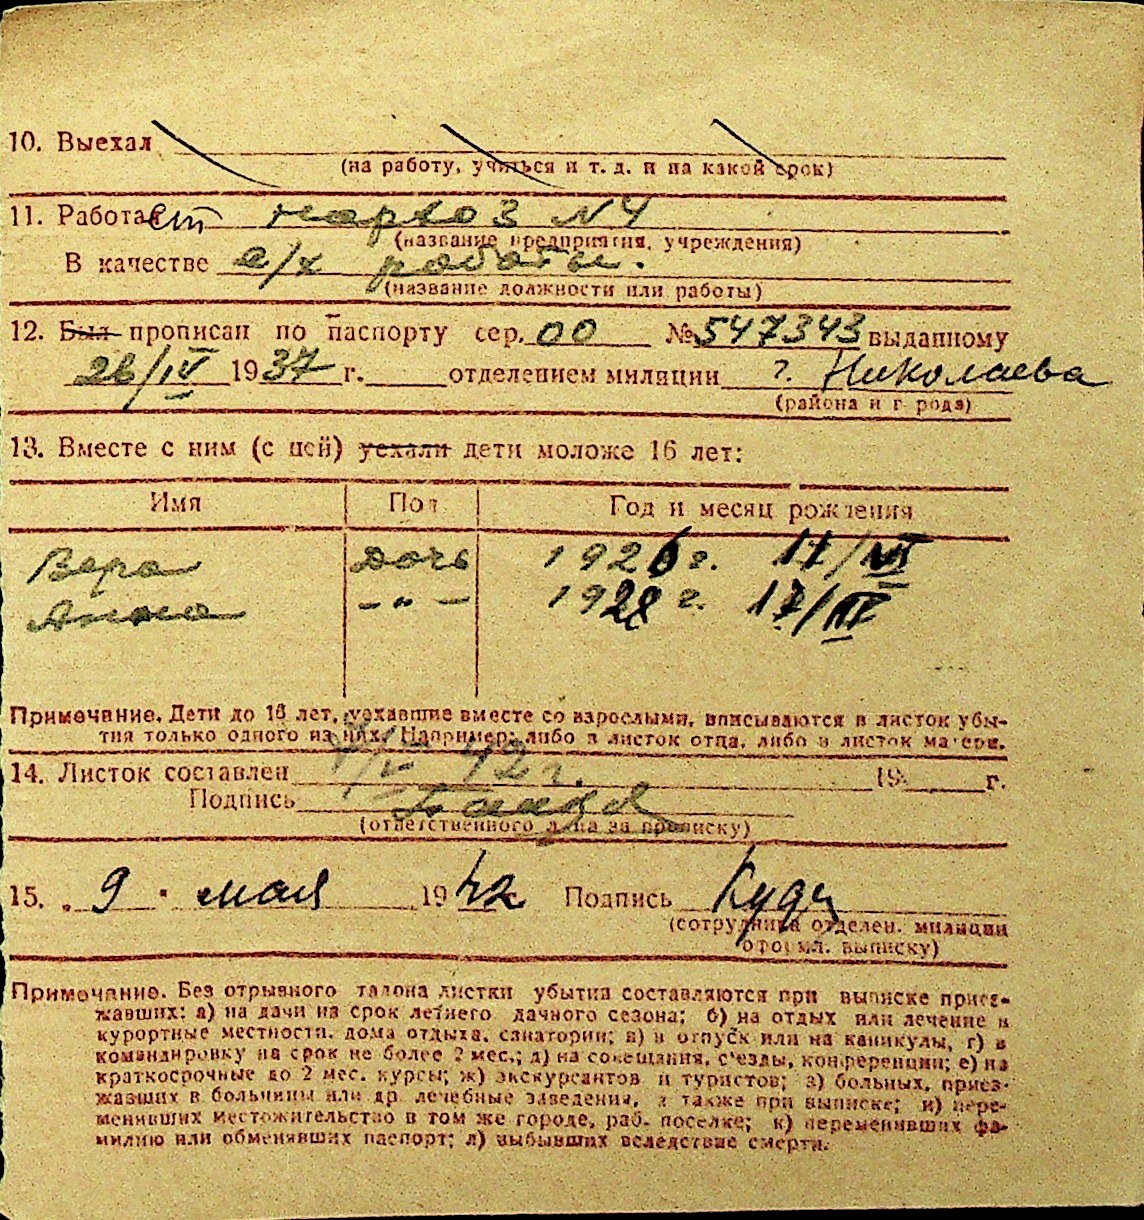 10. Выехал
(на работу, учиться и т. д. и на какой срок)
11. Работает мархоз №4
(название предприятия, учреждения)
В качестве с/х работы.
(название должности или работы)
12. Был прописан по паспорту сер. 00 № 547343 выданному
26/IV 1937 г. отделением милиции г. Николаева
(района и города)
13. Вместе с ним (с ней) уехали дети моложе 16 лет:
Имя Пол Год и месяц рождения
Вера дочь 1926 г. 17/VII
Анна -"- 1928 г. 17/III
Примечание. Дети до 16 лет, уехавшие вместе со взрослыми, вписываются в листок убы-
тия только одного из них. Например: либо в листок отца, либо в листок матери.
14. Листок составлен 7/V 42 г. 19 г.
Подпись
(ответственного лица за прописку)
15. „ 9 " мая 1942 Подпись
(сотрудника отделен. милиции
оформл. выписку)
Примечание. Без отрывного талона листки убытия составляются при выписке приез-
жавших: а) на дачи на срок летнего дачного сезона; б) на отдых или лечение в
курортные местности, дома отдыха, санатории; в) в отпуск или на каникулы, г) в
командировку на срок не более 2 мес.; д) на совещания, с'езды, конференции; е) на
краткосрочные до 2 мес. курсы; ж) экскурсантов и туристов; з) больных, приез-
жавших в больницы или др. лечебные заведения, а также при выписке; и) пере-
менивших местожительство в том же городе, раб. поселке; к) переменивших фа-
милию или обменявших паспорт; л) выбывших вследствие смерти.